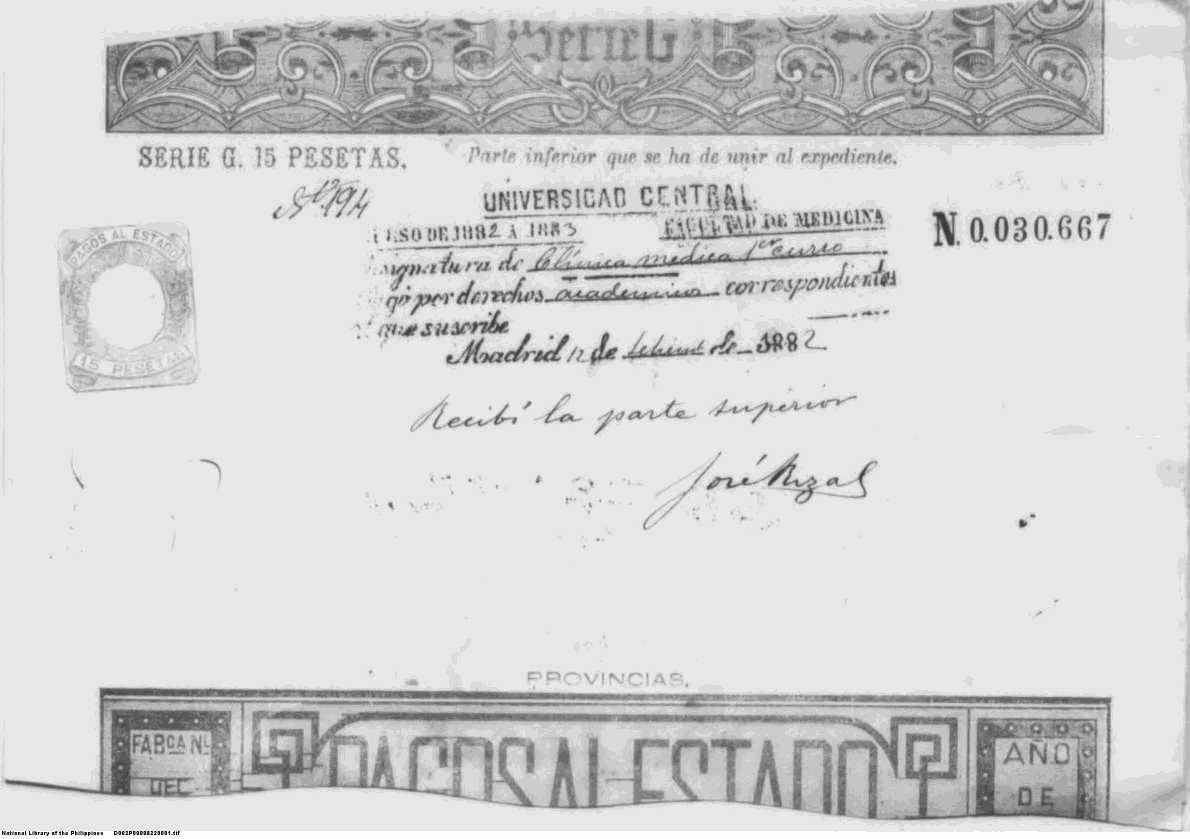 Serie G
SERIE G. 15 PESETAS. Parte inferior que se ha de unir al expediente.
Nº 194
UNIVERSIDAD CENTRAL.
RSO DE 1882 A 1883 FACULTAD DE MEDICINA
N. 0.030.667
PAGOS AL ESTADO
15 PESETAS
signatura de Clínica médica 1er curso
gó por derechos academicos correspondientes
que suscribe
Madrid 12 de de 1882
Recibí la parte superior
José Rizal
PROVINCIAS.
FABCA NL
DEL
PAGOS AL ESTADO
AÑO
DE
National Library of the Philippines D002P00000220001.tif